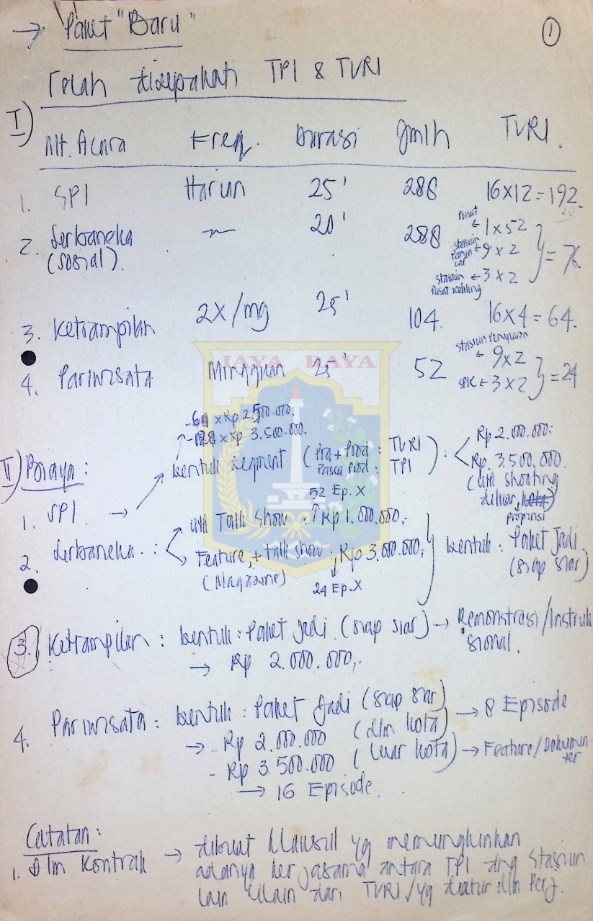 → Paket "Baru"
1
Telah disepakati TPI & TVRI
I)
Mt. Acara Freq. Durasi Jmlh TVRI.
1. SPI Harian 25' 288 16x12 = 192.
2. Serbaneka (sosial). 20' 288
Pusat ← 1x52
stasiun ← 9x2
stasiun ← 3x2
} = 76
Pusat keliling
3. Ketrampilan 2x/mg 25' 104. 16x4 = 64.
4. Pariwisata Mingguan 25' 52
stasiun penyiaran ← 9x2
SPK ← 3x2
} = 24
JAYA RAYA
x Rp 2.500.000.
x Rp 3.500.000.
II) Biaya:
1. SPI → bentuk segment (Pra + Prod : TVRI
Pasca Prod : TPI) :
Rp 2.000.000.
Rp. 3.500.000.
(utk shooting
diluar
propinsi
52 Ep. x
2. Serbaneka :
utk Talk Show : Rp 1.000.000,-
Feature + talk show : Rp 3.000.000,-
(Magazine)
24 Ep. x
bentuk : Paket Jadi
(siap siar)
3. Ketrampilan : bentuk : Paket jadi (siap siar) → Demonstrasi/Instruk
sional.
→ Rp 2.000.000,-
4. Pariwisata : bentuk : Paket Jadi (siap siar)
→ - Rp 2.000.000 (dlm kota) → 8 Episode
- Rp 3.500.000 (luar kota) → Feature/Dokumen
ter
→ 16 Episode.
Catatan :
1. Dlm Kontrak → dibuat klausul yg memungkinkan
adanya kerjasama antara TPI dng stasiun
lain selain dari TVRI/yg diatur dlm Perj.